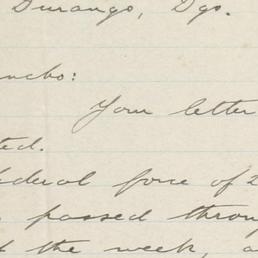 Durango, Dgo.
ncho:
Your letter
ted.
ederal force of 2
passed throug
t the week, a